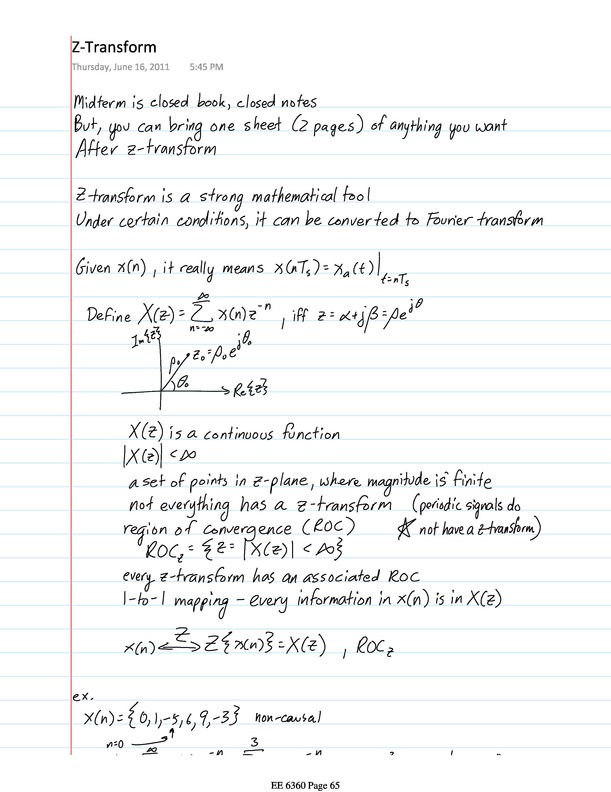 Z-Transform
Thursday, June 16, 2011 5:45 PM
Midterm is closed book, closed notes
But, you can bring one sheet (2 pages) of anything you want
After z-transform
Z-transform is a strong mathematical tool
Under certain conditions, it can be converted to Fourier transform
Given x(n), it really means x(nTs) = xa(t)|t=nTs
Define X(z) = ∑ n=-∞ ∞ x(n) z^-n , iff z = α+jβ = ρe^jθ
Im{z}
ρ₀ z₀ = ρ₀e^jθ₀
θ₀
Re{z}
X(z) is a continuous function
|X(z)| < ∞
a set of points in z-plane, where magnitude is finite
not everything has a z-transform (periodic signals do
region of convergence (ROC) ☆ not have a z-transform)
ROCz = {z = |X(z)| < ∞}
every z-transform has an associated ROC
1-to-1 mapping - every information in x(n) is in X(z)
x(n) ⟷ Z Z{x(n)} = X(z) , ROCz
ex.
x(n) = {0, 1, -5, 6, 9, -3} non-causal
n=0
EE 6360 Page 65